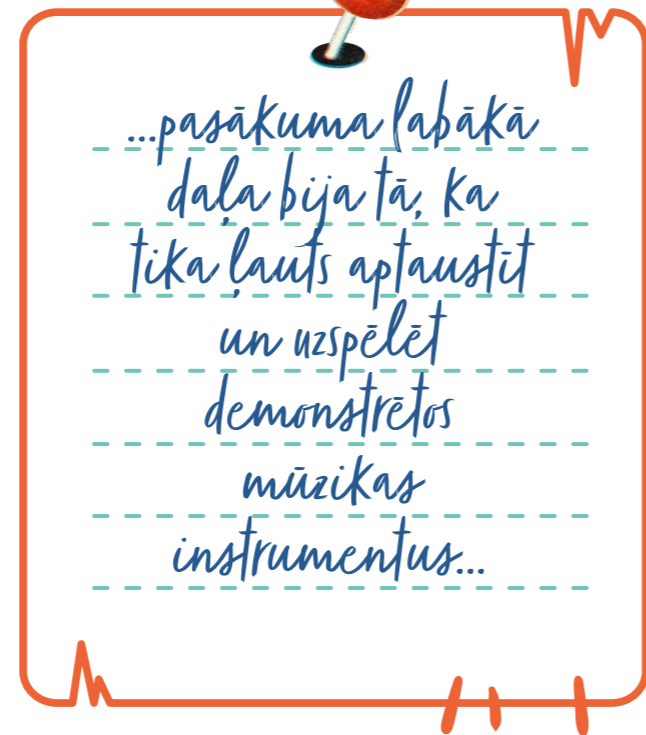 ...pasākuma labākā
daļa bija tā, ka
tika ļauts aptaustīt
un uzspēlēt
demonstrētos
mūzikas
instrumentus...